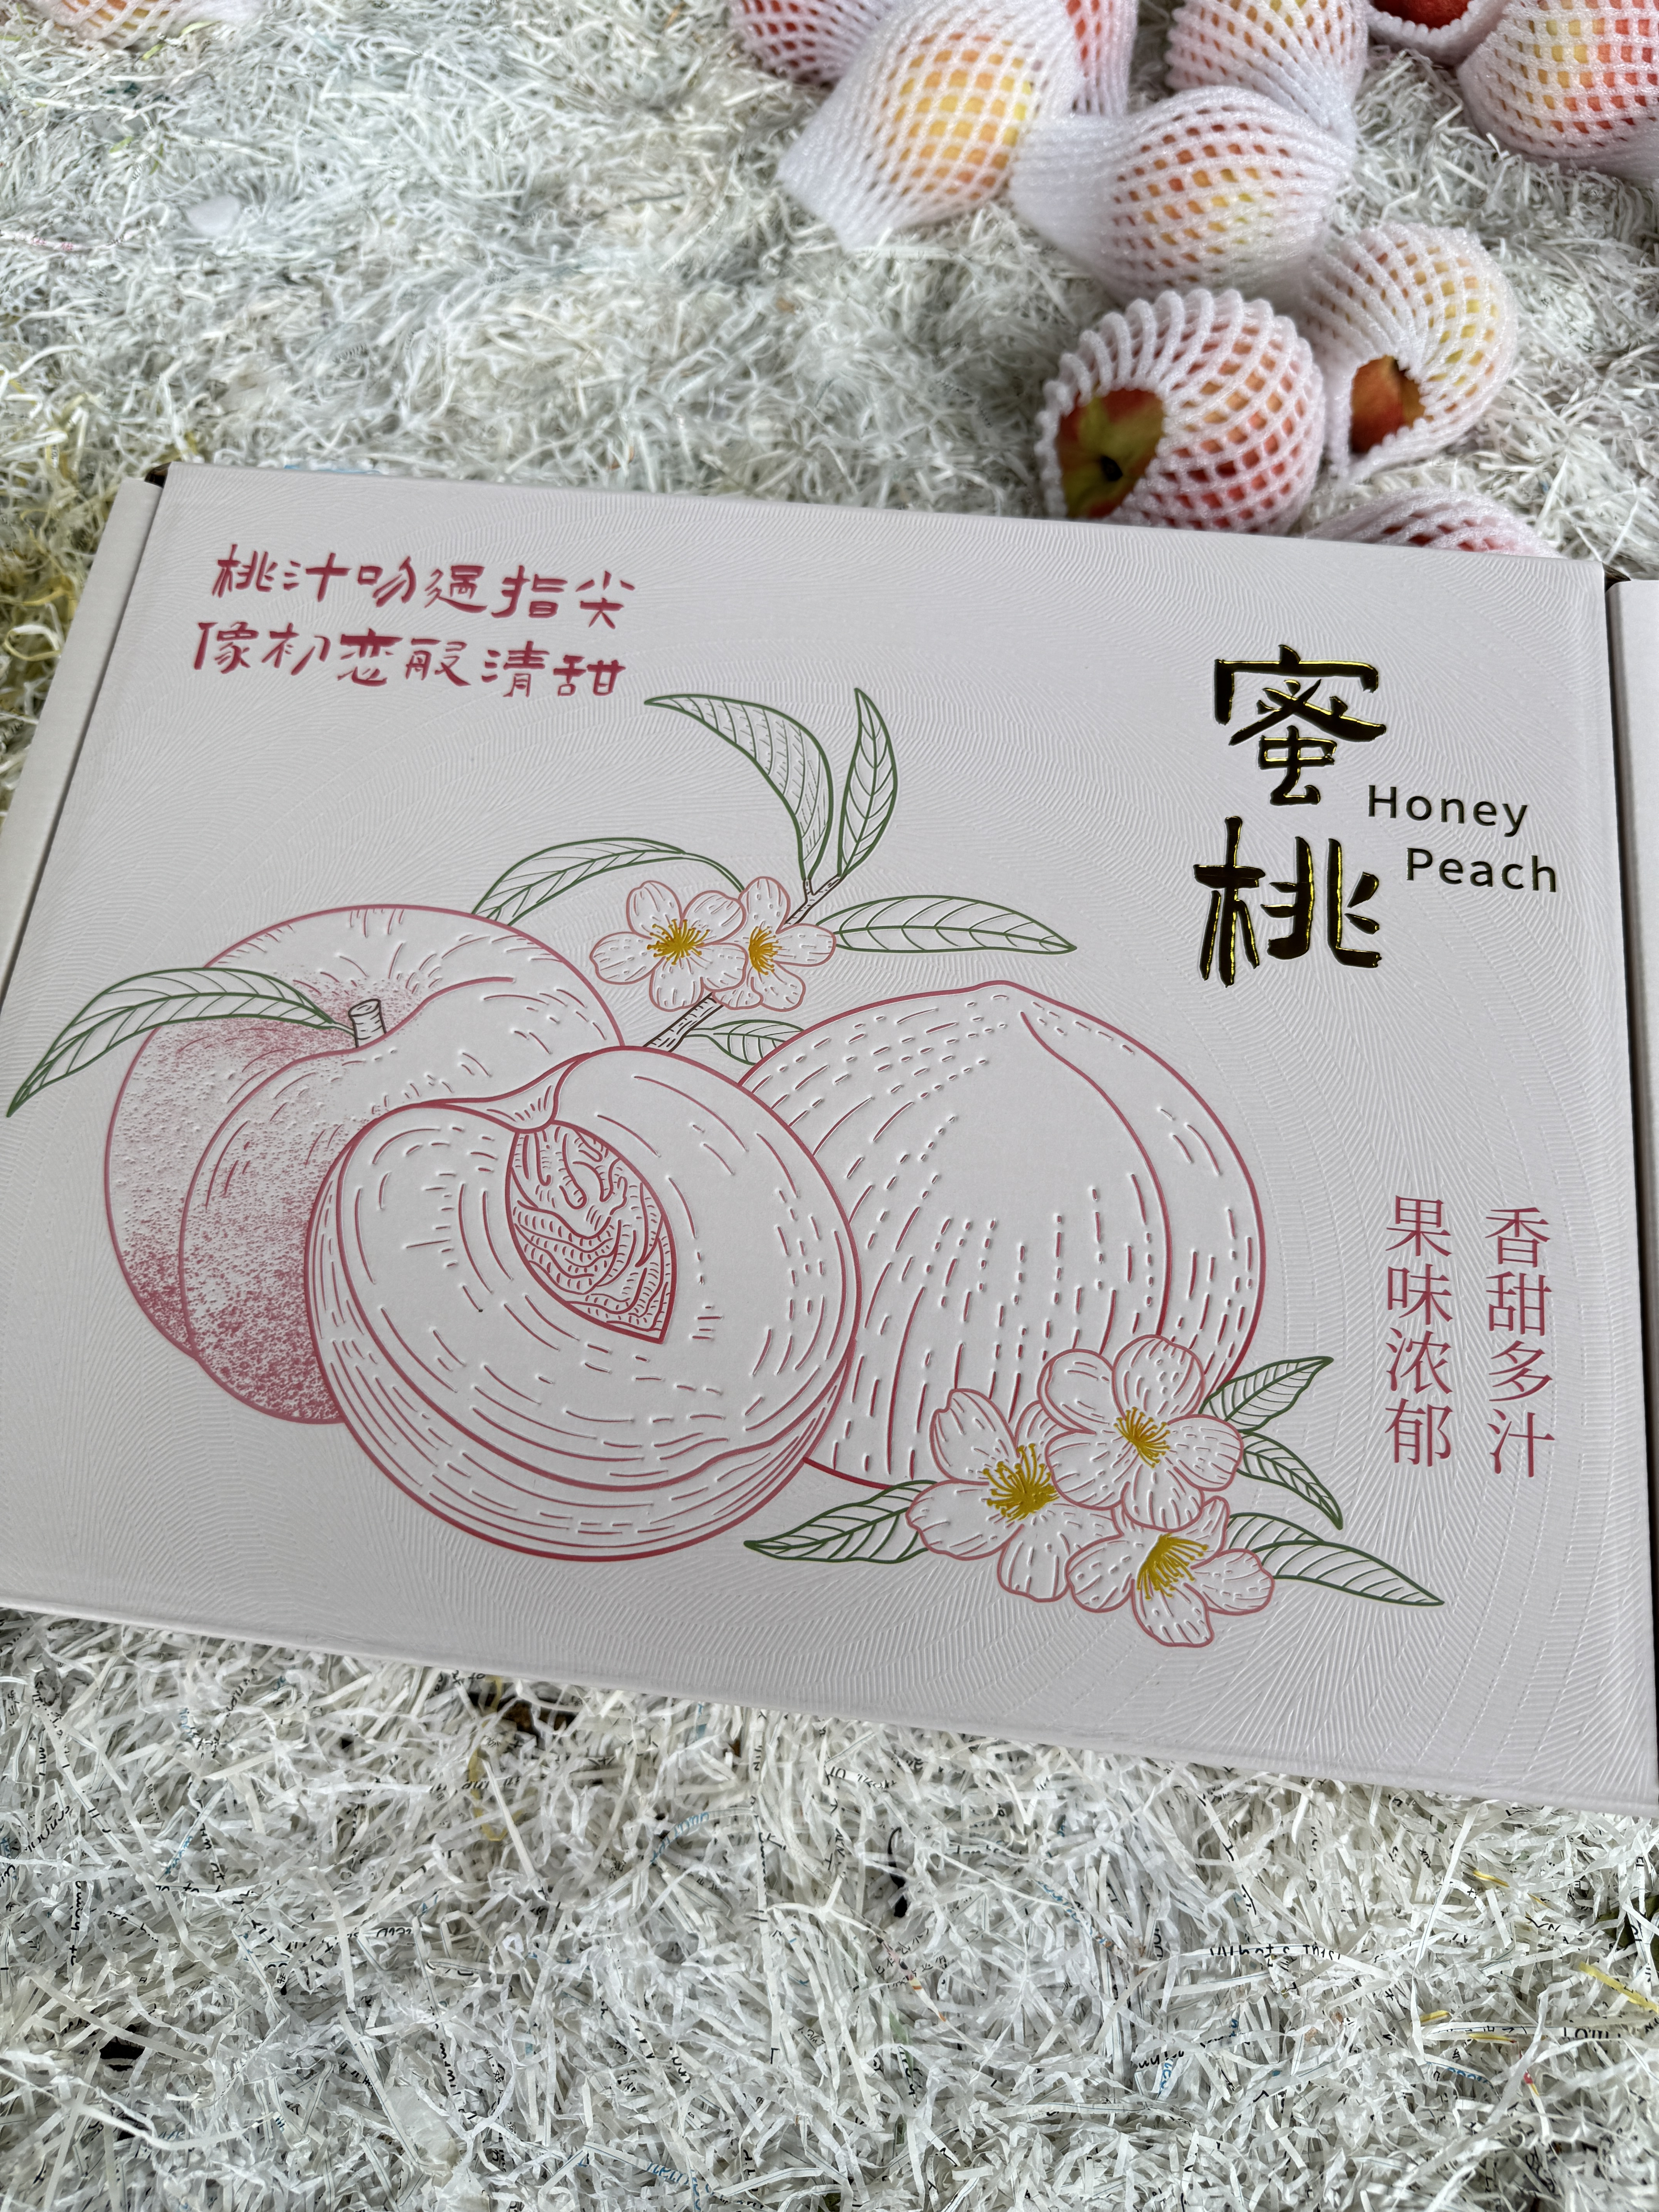 桃汁吻過指尖
像初恋般清甜
蜜桃
Honey
Peach
香甜多汁
果味浓郁